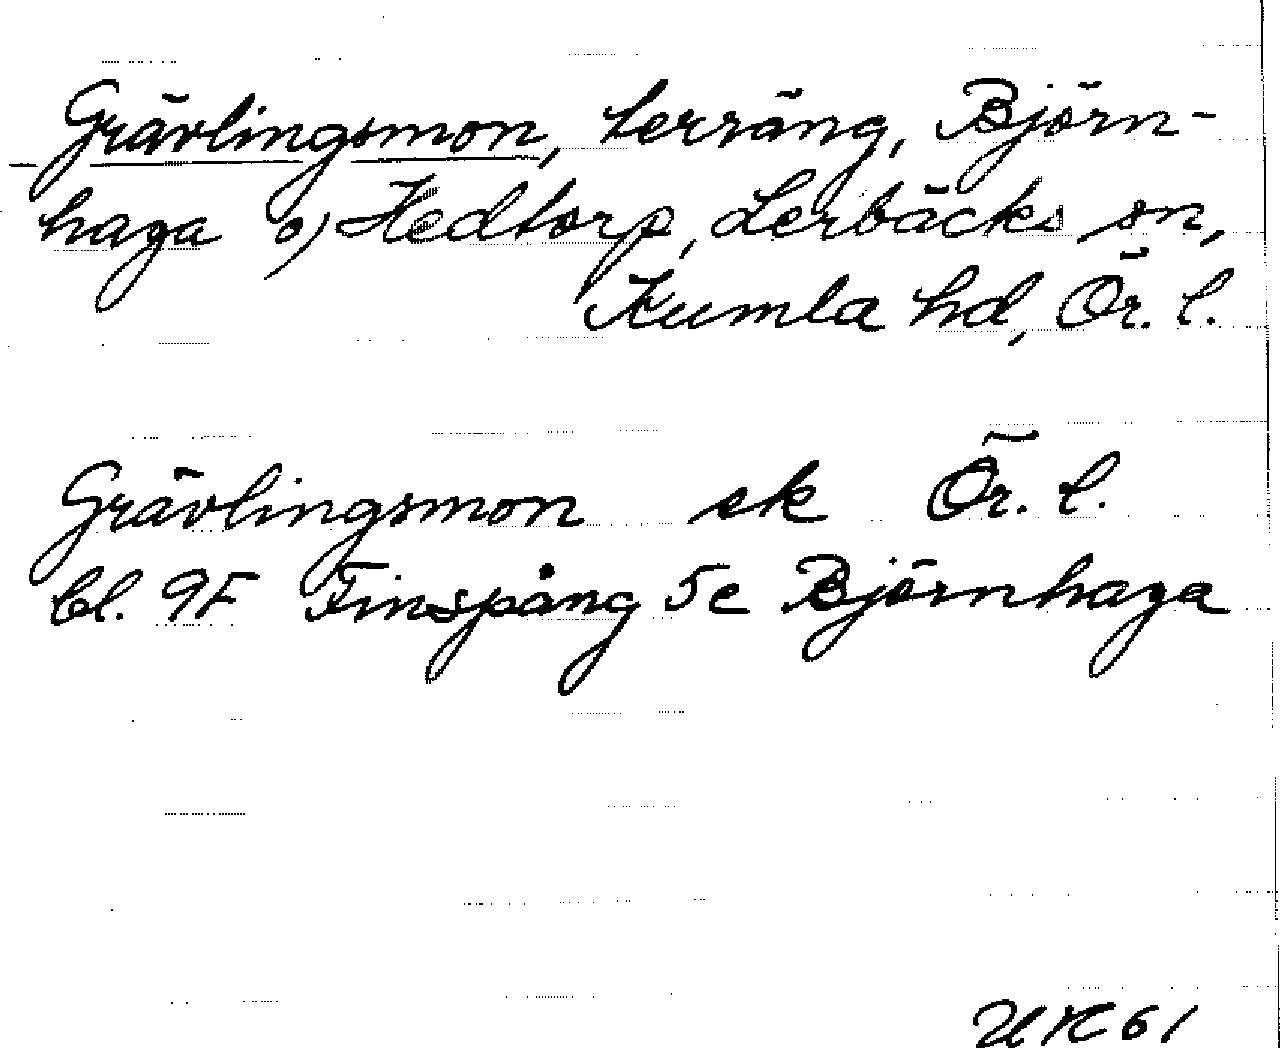 Grävlingsmon, terräng, Björn-
haga o) Hedtorp, Lerbäcks sn,
Kumla hd, Ör. l.
Grävlingsmon ek Ör. l.
bl. 9F Finspång 5c Björnhaga
61